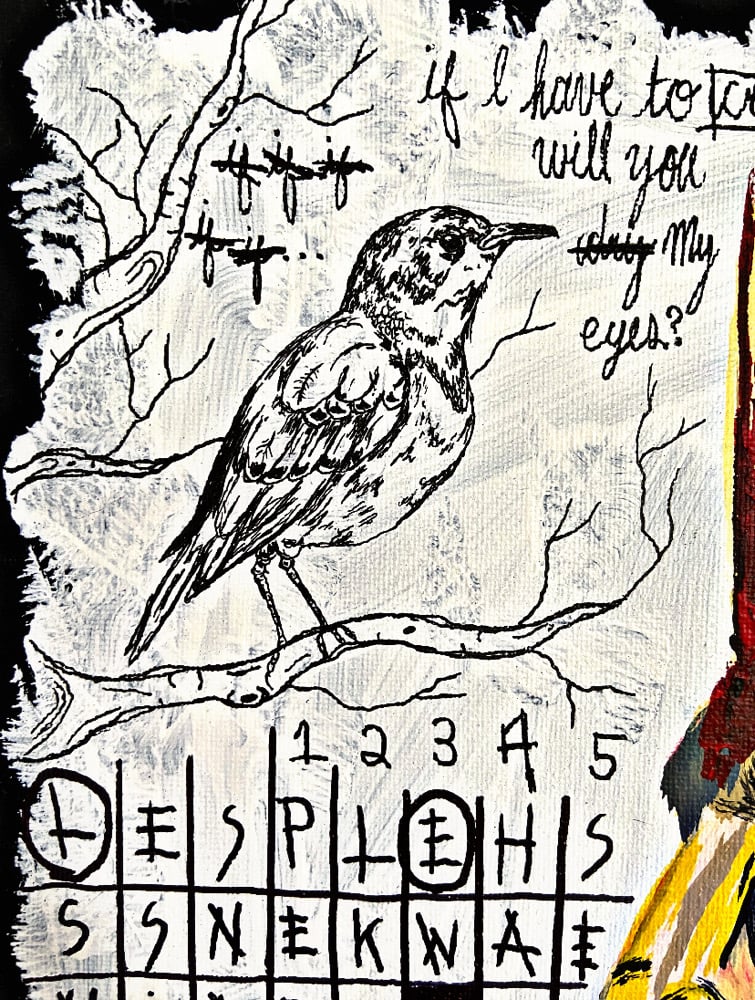 if I have to
will you
if if if
if if...
dry My
eyes?
1 2 3 4 5
E S P E H S
S S N E K W A E